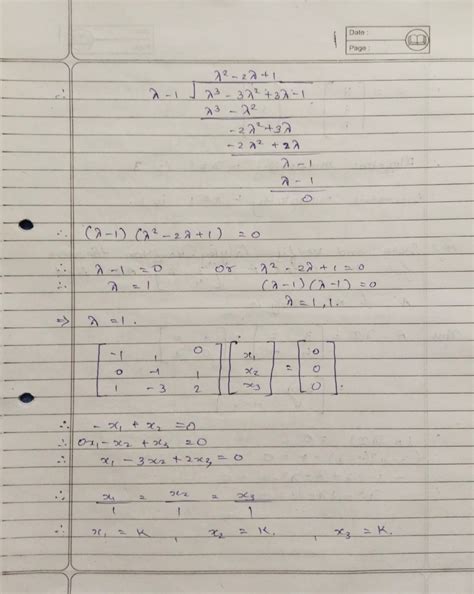 Date :
Page :
λ² - 2λ + 1
∴ λ - 1 √ λ³ - 3λ² + 3λ - 1
λ³ - λ²
-2λ² + 3λ
-2λ² + 2λ
λ - 1
λ - 1
0
∴ (λ-1) (λ² - 2λ + 1) = 0
∴ λ - 1 = 0 or λ² - 2λ + 1 = 0
∴ λ = 1 (λ-1) (λ-1) = 0
λ = 1, 1.
⇒ λ = 1.
[ -1 1 0 ] [ x₁ ] = [ 0 ]
[ 0 -1 1 ] [ x₂ ] [ 0 ]
[ 1 -3 2 ] [ x₃ ] [ 0 ].
∴ -x₁ + x₂ = 0
∴ 0x₁ - x₂ + x₃ = 0
∴ x₁ - 3x₂ + 2x₃ = 0
∴ x₁/1 = x₂/1 = x₃/1
∴ x₁ = K , x₂ = K. , x₃ = K.